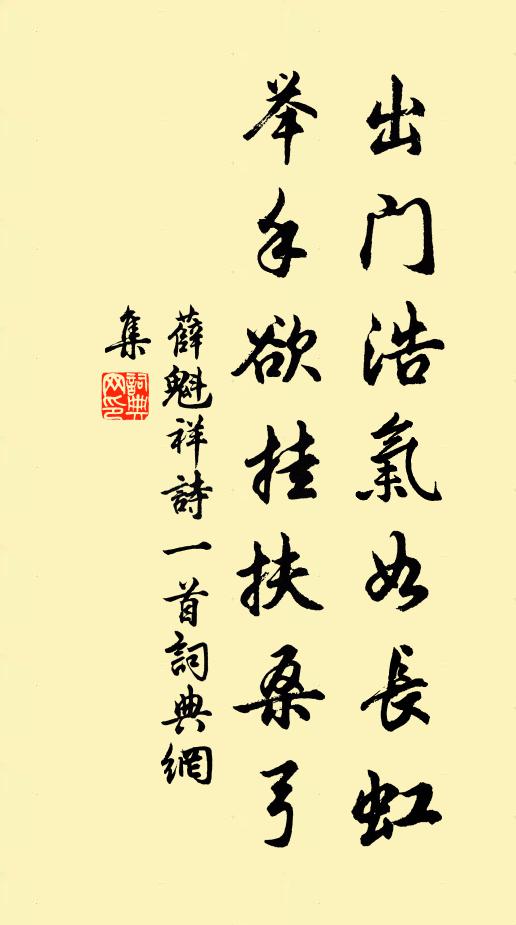 出门浩氣如長虹
举手欲挂扶桑弓
薛魁祥詩一首詞典網
集
詞典网印